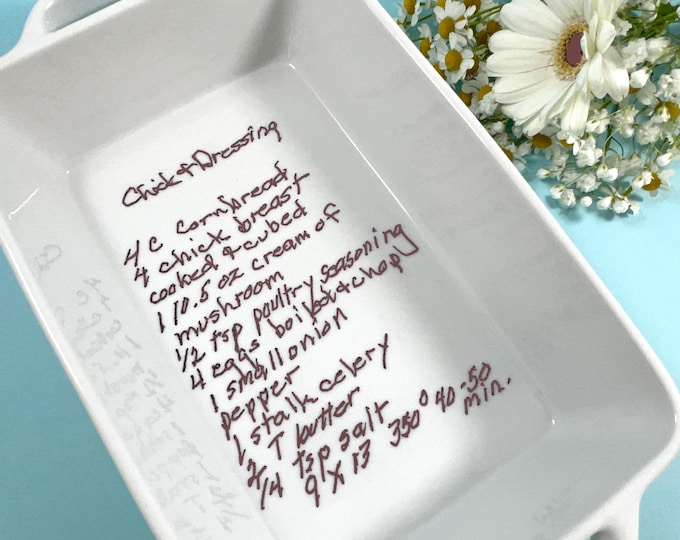 Chick & Dressing
4 C cornbread
4 chick breast
cooked & cubed
1 10.5 oz cream of
mushroom
1/2 tsp poultry seasoning
4 eggs boiled & chop
1 small onion
pepper
1 stalk celery
2 T butter
1/4 tsp salt
9 x 13 350° 40-50
min.